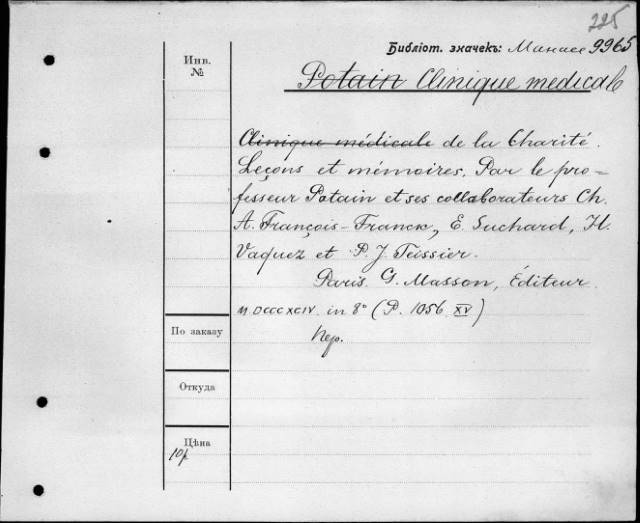 225
Библіот. значекъ: Минасе 9965
Инв.
№
Potain Clinique medicale
Clinique médicale de la Charité.
Leçons et mémoires. Par le pro-
fesseur Potain et ses collaborateurs Ch.
A. François-Franck, E. Suchard, H.
Vaquez et P. J. Teissier.
Paris. G. Masson, Éditeur.
M.DCCCXCIV. in 8° (P. 1056 XV)
Пер.
По заказу
Откуда
Цѣна
10р